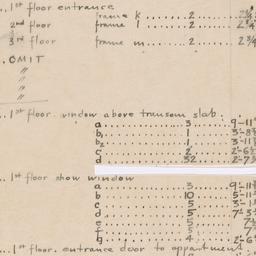 ... 1st floor entrance
frame k ....... 2 ....... 2'
2nd floor frame l ....... 2 ....... 2'
3rd floor frame m ....... 2 ....... 2 3/4
.. OMIT
"
"
"
.. 1st floor window above transom slab.
a ....... 3 ....... 9-11
b, ....... 1 ....... 3-8
b2 ....... 1 ....... 3-11
c ....... 2 ....... 2-6
d ....... 32 ....... 2-7
... 1st floor show window
a ....... 5 ....... 9-11
b ....... 10 ....... 5-11
c ....... 5 ....... 3-1
d ....... 5 ....... 7-3
e ....... 5
f ....... 5
g ....... 4 ....... 2-6
... 1st floor. entrance door to apartment